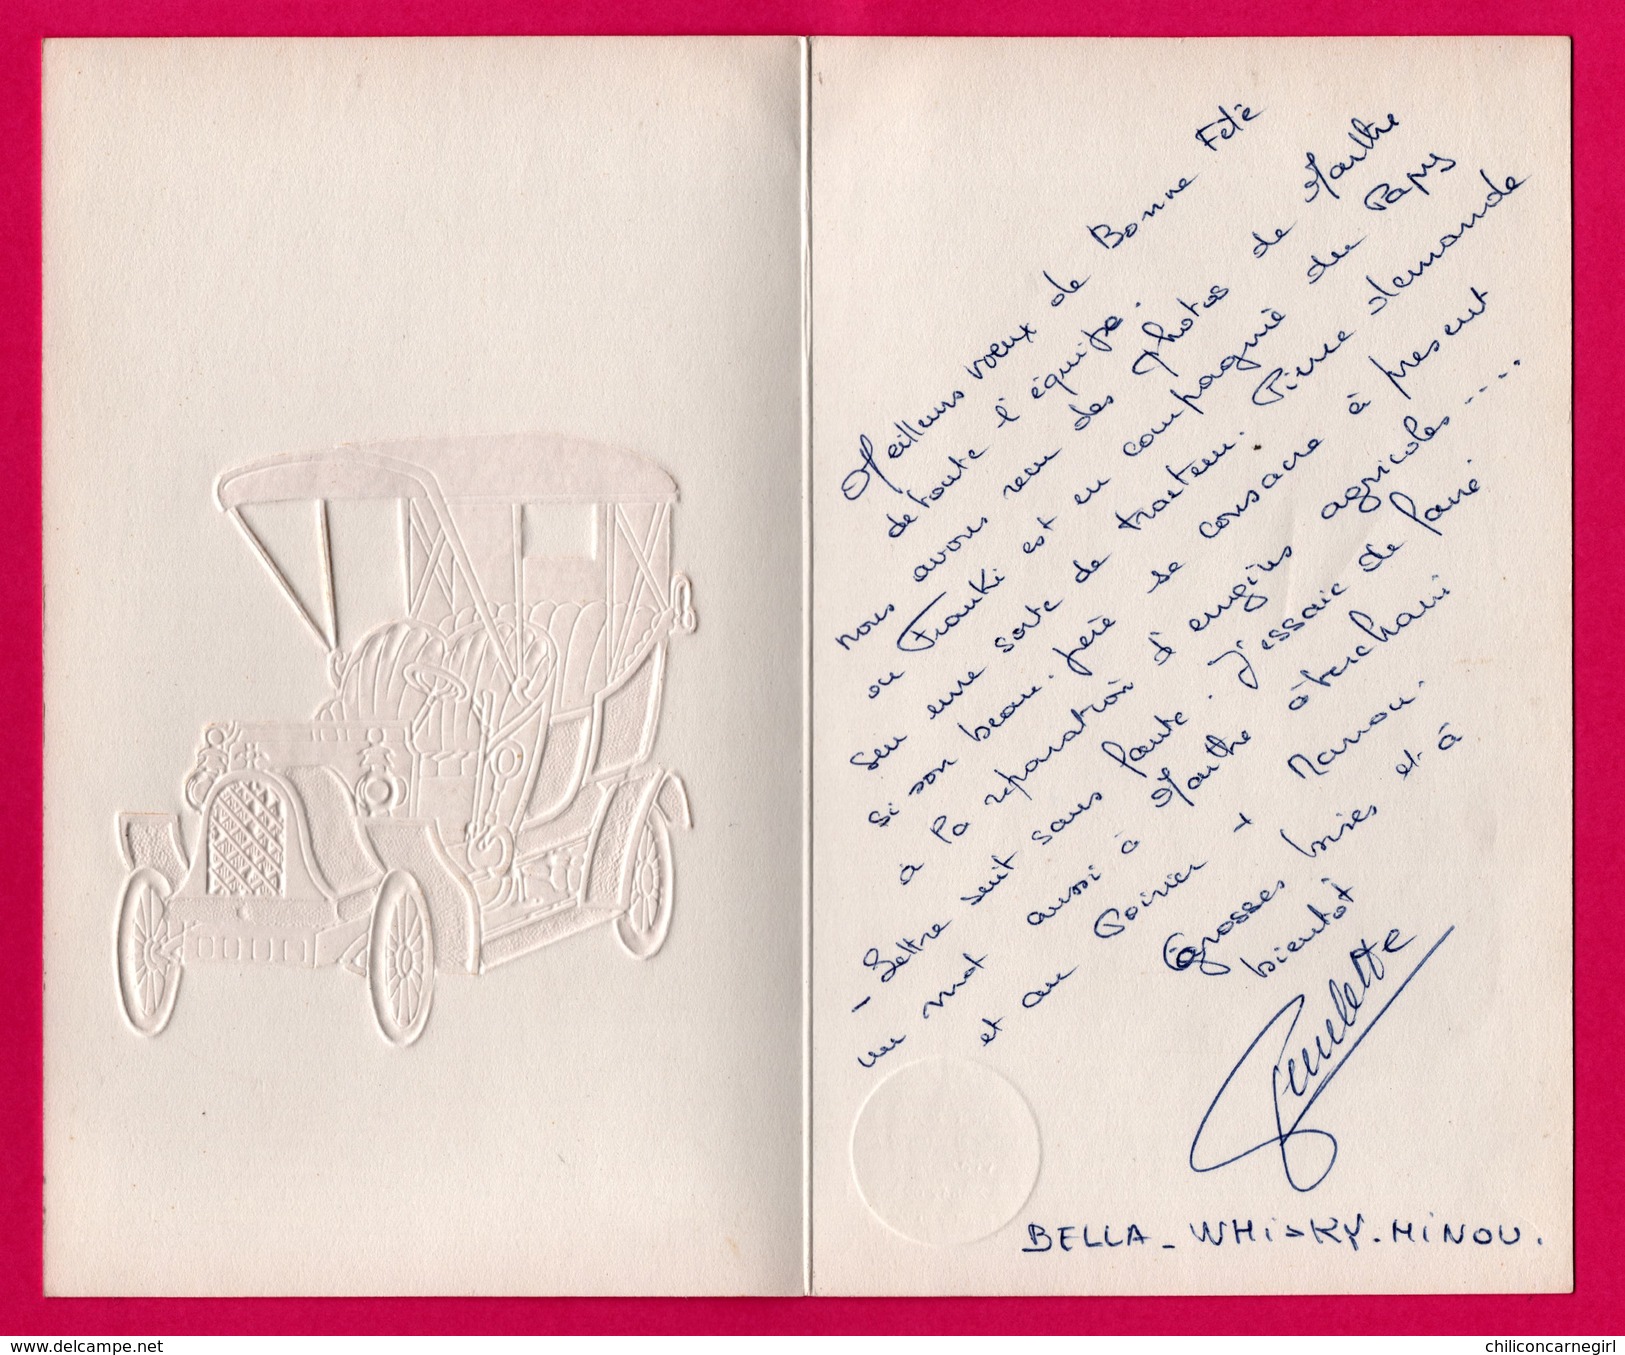 Meilleurs voeux de Bonne Fête
de toute l'équipe.
nous avons reçu des photos de Marthe
ou Franki est en compagnie du Papy
sur une sorte de tracteur. Pierre demande
si son beau-père se consacre à présent
à la réparation d'engins agricoles ....
- Lettre suit sans faute. J'essaie de faire
un mot aussi à Marthe
et au Poirier + Manou.
Grosses bises et à
bientôt
Paulette
BELLA - WHISKY - MINOU.
chiliconcarnegirl